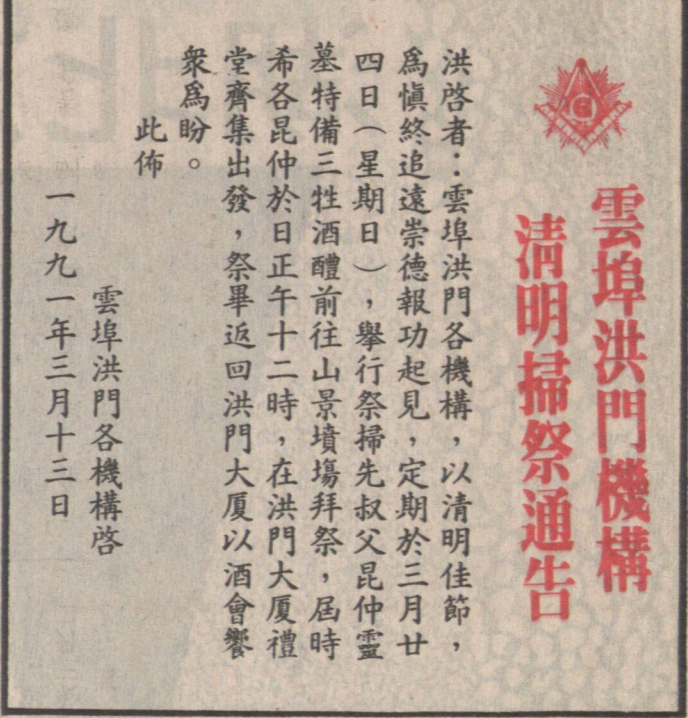 雲埠洪門機構
清明掃祭通告
G
洪啓者：雲埠洪門各機構，以清明佳節，
爲愼終追遠崇德報功起見，定期於三月廿
四日（星期日），舉行祭掃先叔父昆仲靈
墓特備三牲酒醴前往山景墳塲拜祭，屆時
希各昆仲於日正午十二時，在洪門大厦禮
堂齊集出發，祭畢返回洪門大厦以酒會饗
衆爲盼。
此佈
雲埠洪門各機構啓
一九九一年三月十三日